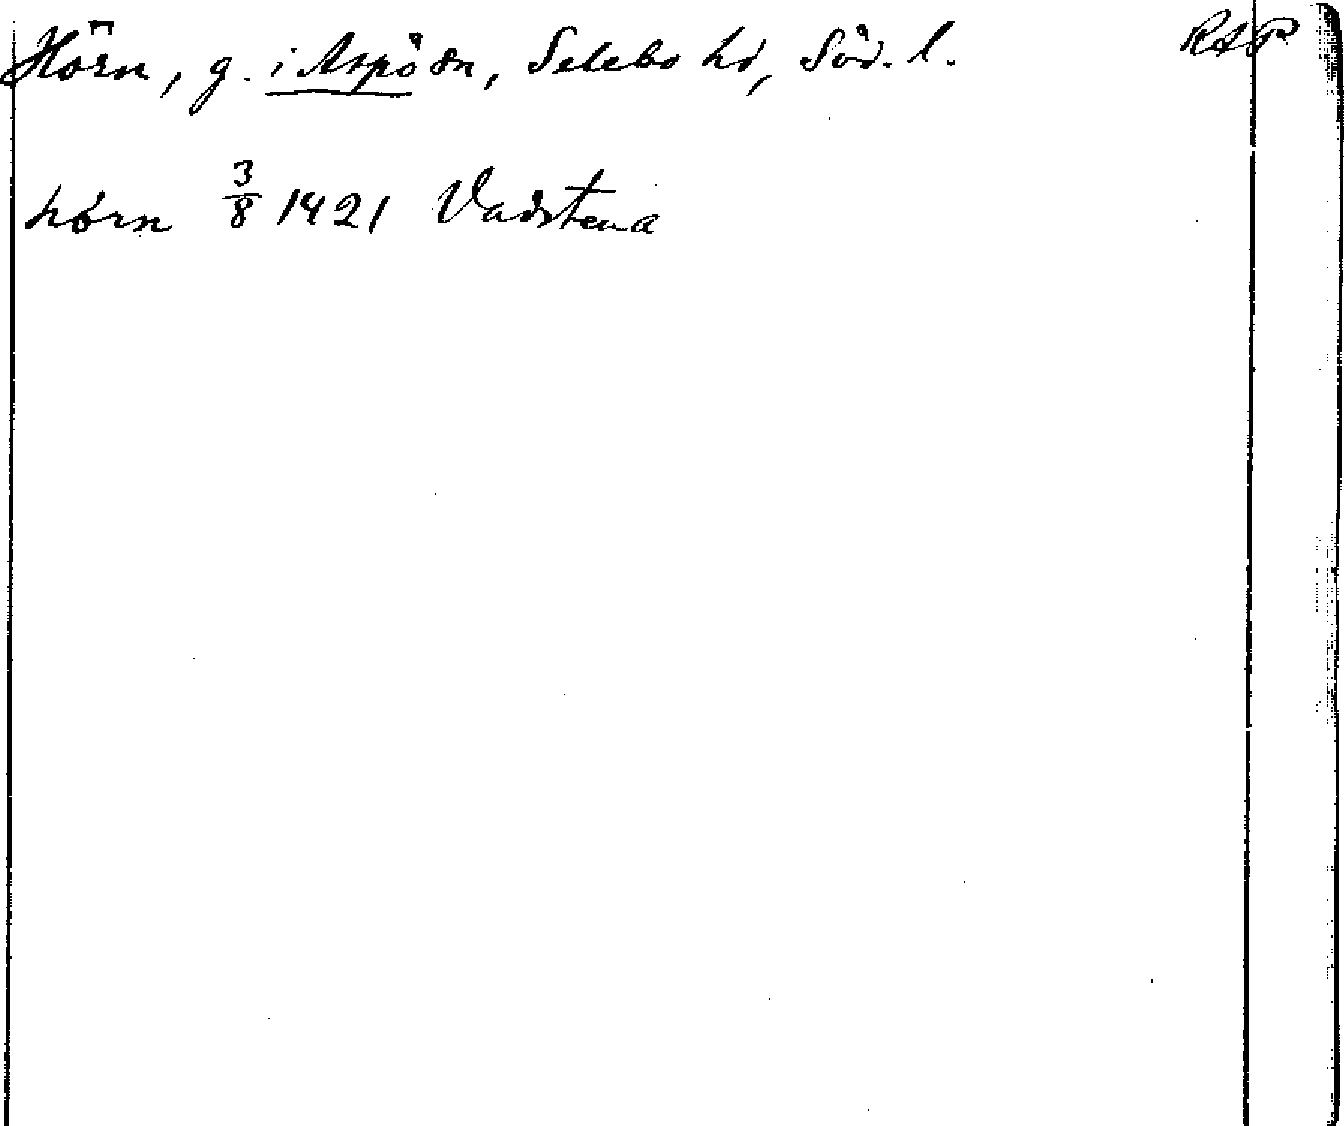 Hörn, g. i Aspö sn, Selebo hd, Söd. l. RAP
hørn 3/8 1421 Vadstena